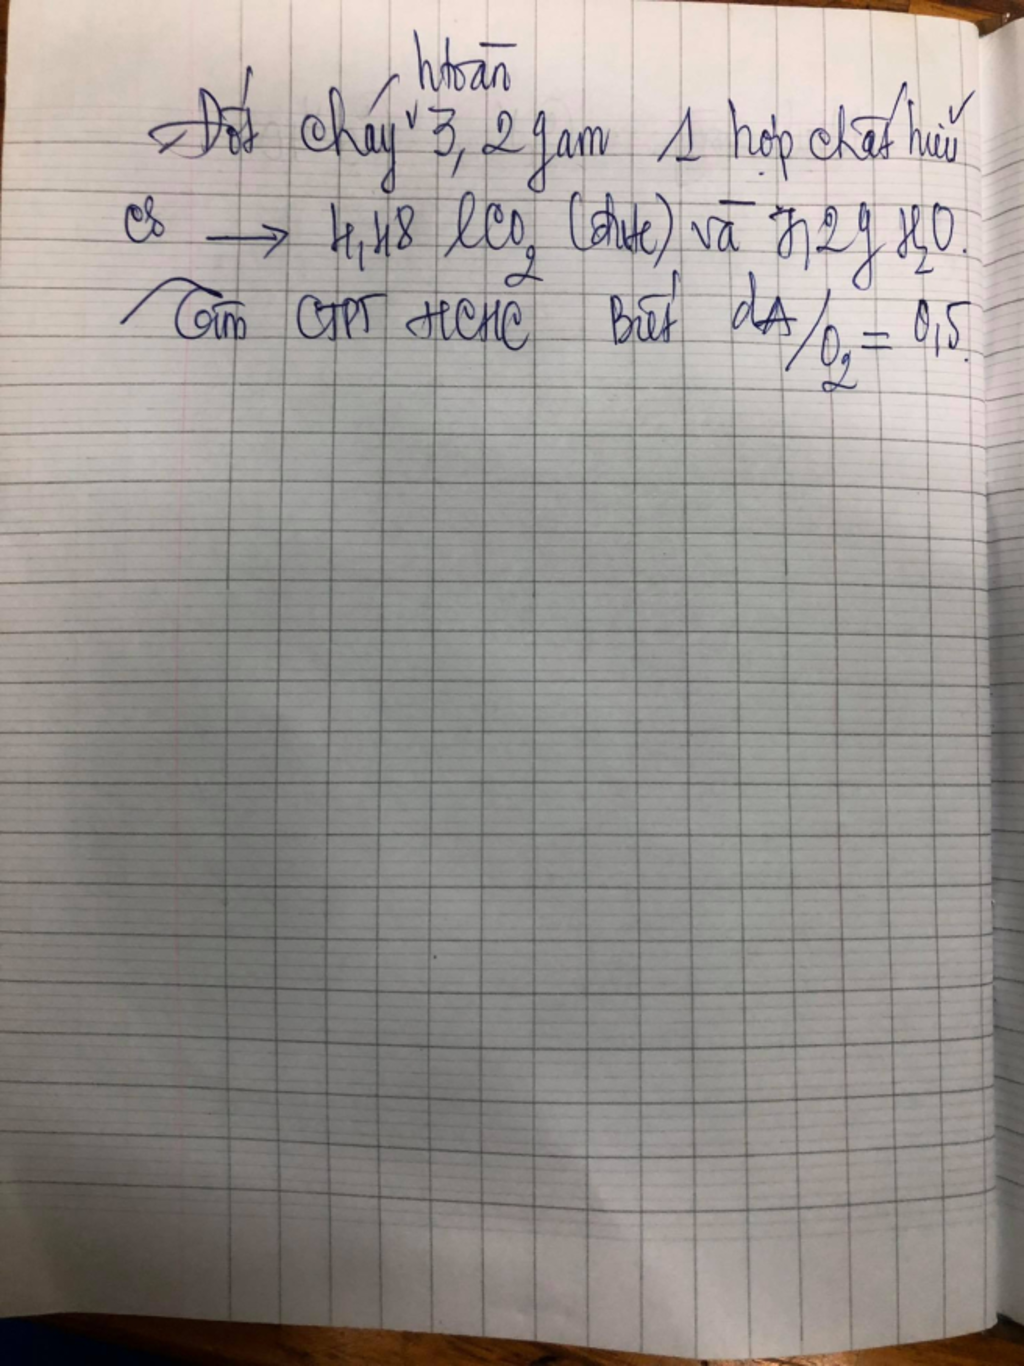 htoàn
Đốt cháy 3,2 gam 1 hợp chất hữu
cơ → 4,48 l CO₂ (đktc) và 7,2g H₂O.
Tìm CTPT HCHC Biết dA/O₂ = 0,5.